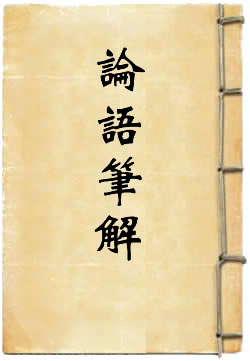 論語筆解